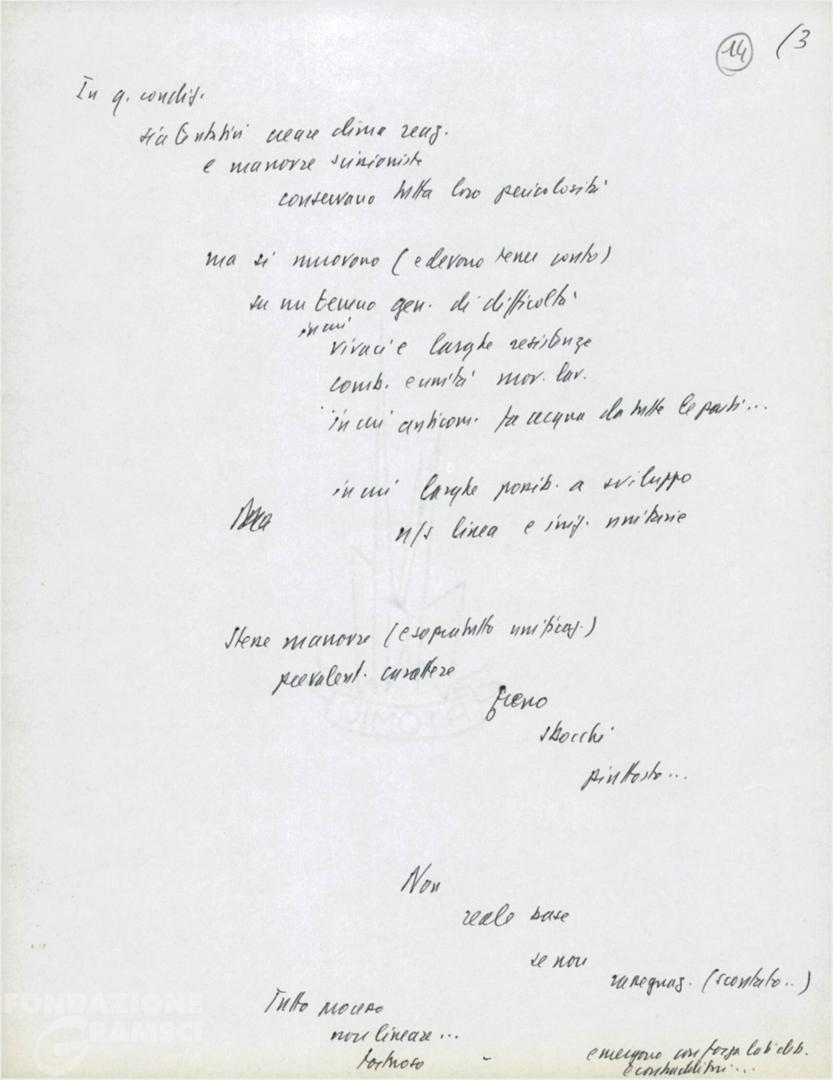 14 (3
In q. condiz.
sia tentativi creare clima reaz.
e manovre scissioniste
conservano tutta loro pericolosità
ma si muovono (e devono tener conto)
su un terreno gen. di difficoltà
in cui
vivaci e larghe resistenze
comb. e unità mov. lav.
in cui anticom. fa acqua da tutte le parti...
in cui larghe possib. a sviluppo
n/s linea e iniz. unitarie
Stesse manovre (e soprattutto unificaz.)
prevalent. carattere
freno
sbocchi
piuttosto...
Non
reale base
se non
rassegnaz. (scontato..)
Tutto processo
non lineare...
tortuoso
emergono con forza lati deb.
e contraddittori...
FONDAZIONE
GRAMSCI